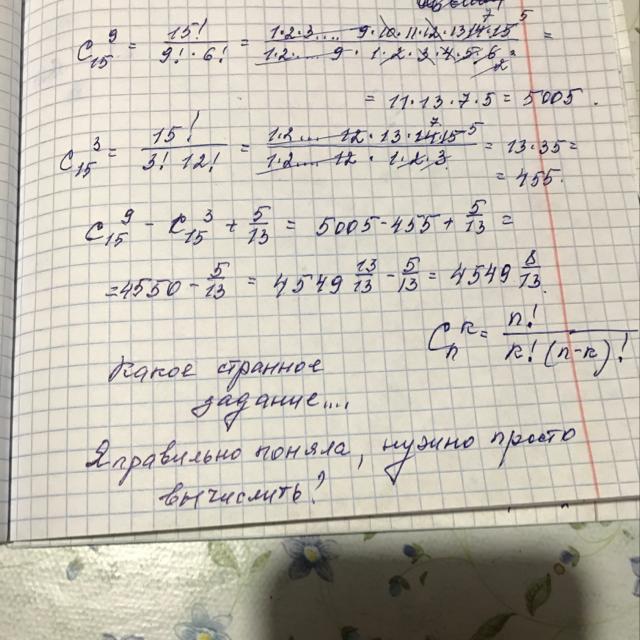 C₁₅⁹ = 15! / 9! · 6! = 1·2·3.... 9·10·11·12·13·14·15 / 1·2.... 9 · 1·2·3·4·5·6 =
7 5
2
= 11·13·7·5 = 5005.
C₁₅³ = 15! / 3! 12! = 1·2.... 12·13·14·15 / 1·2.... 12 · 1·2·3 = 13·35 =
7 5
= 455.
C₁₅⁹ - C₁₅³ + 5/13 = 5005 - 455 + 5/13 =
= 4550 - 5/13 = 4549 13/13 - 5/13 = 4549 8/13.
Cₙᵏ = n! / k! (n-k)!
Какое странное
задание....
Я правильно поняла, нужно просто
вычислить?